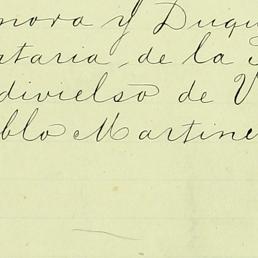 mora y Duqu
ataria, de la
divielso de V
blo Martine